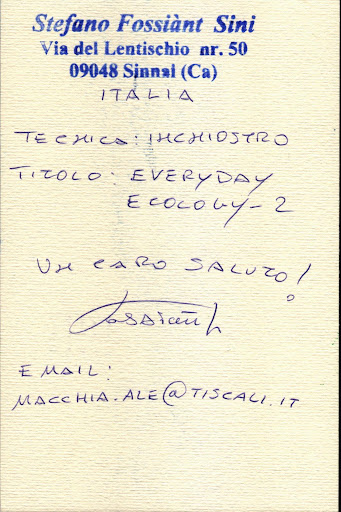 Stefano Fossiànt Sini
Via del Lentischio nr. 50
09048 Sinnai (Ca)
ITALIA
TECNICA: INCHIOSTRO
TITOLO: EVERYDAY
ECOLOGY-2
UN CARO SALUTO!
Fossiànt
EMAIL:
MACCHIA.ALE@TISCALI.IT